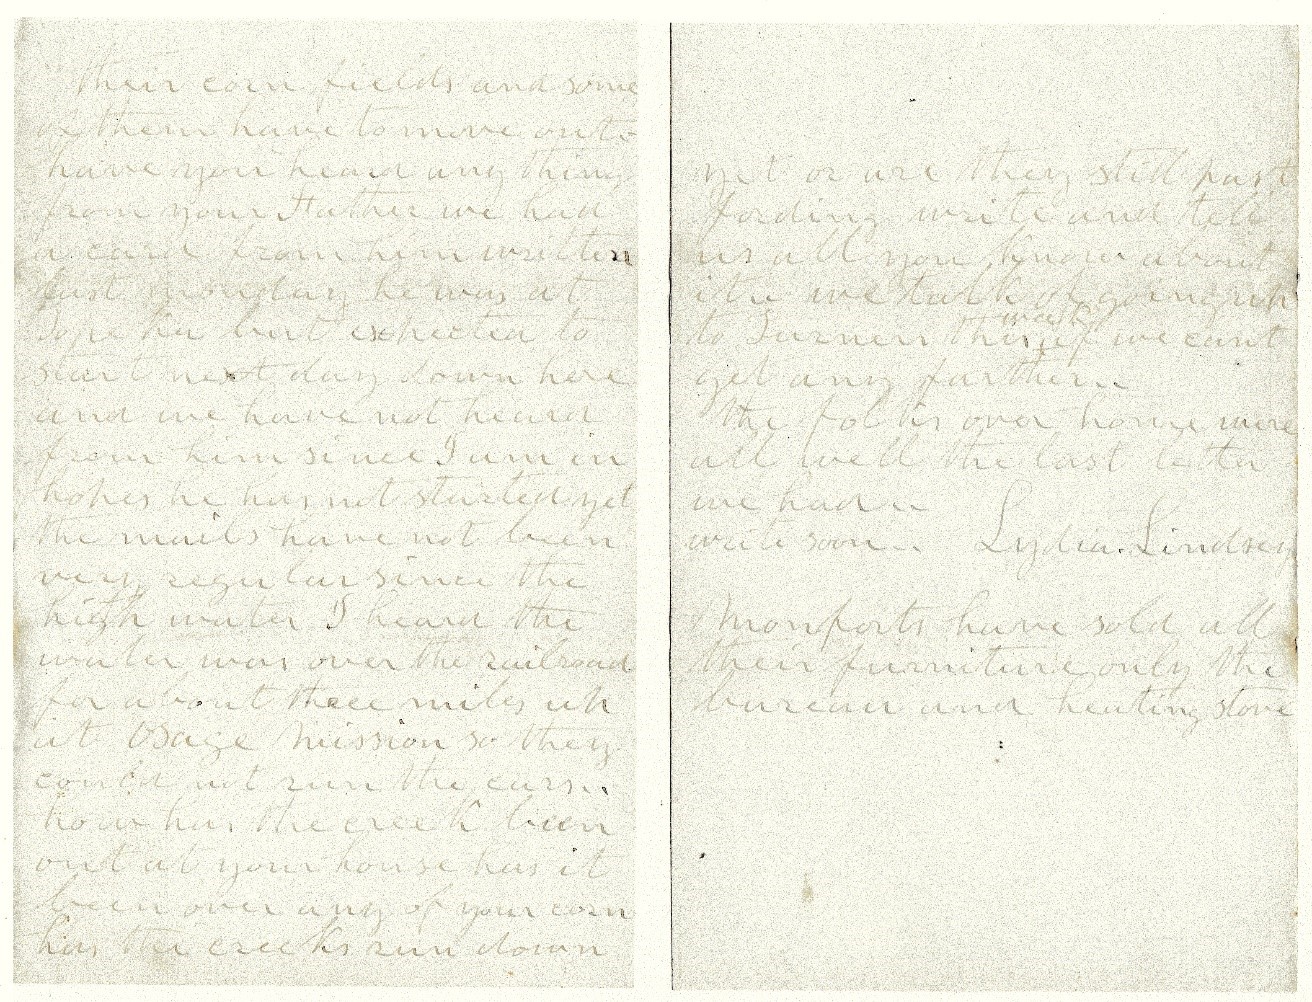 their corn fields and some
of them have to move out
have you heard any thing
from your Father we had
a card from him written
last monday he was at
Topeka but expected to
start next day down here
and we have not heard
from him since I am in
hopes he has not started yet
the mails have not been
very regular since the
high water I heard the
water was over the railroad
for about three miles up
at Osage Mission so they
could not run the cars..
how has the creek been
out at your house has it
been over any of your corn
has the creeks run down
yet or are they still past
fording write and tell
us all you know about
it.. we talk of going up
to Turners this week if we cant
get any farther..
The folks over home were
all well the last letter
we had..
write soon.. Lydia. Lindsey
Monforts have sold all
their furniture only the
bureau and heating stove